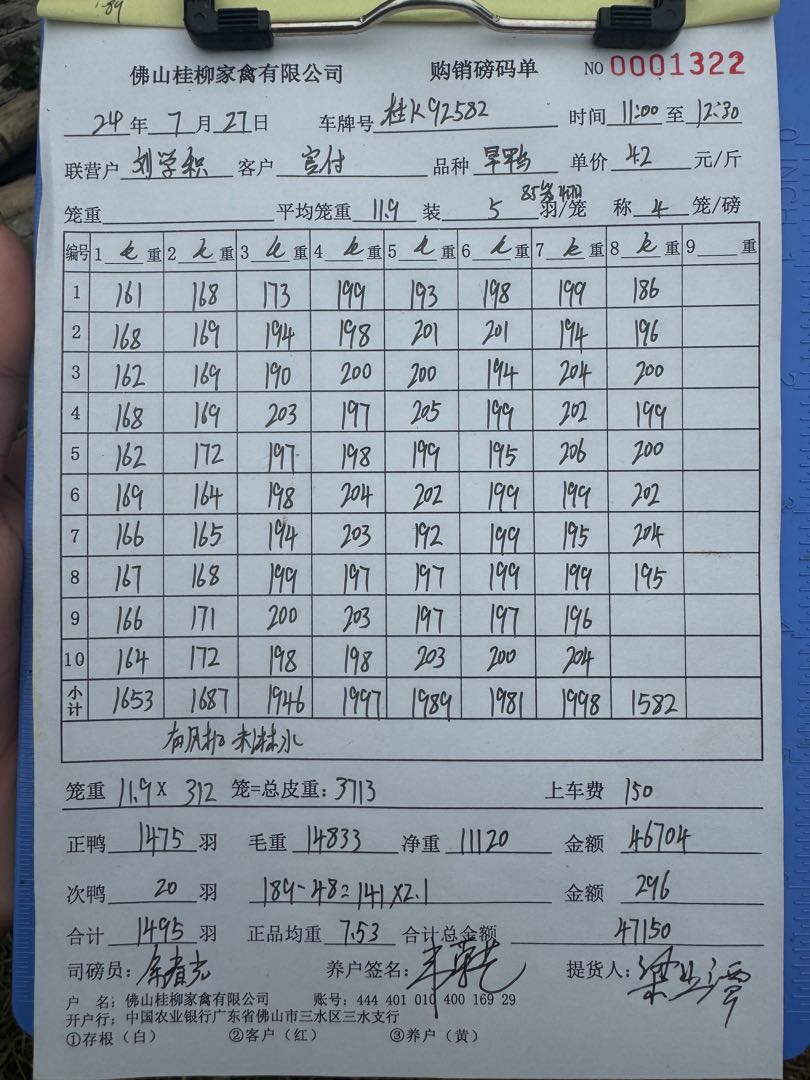 佛山桂柳家禽有限公司 购销磅码单 NO 0001322
24 年 7 月 27 日 车牌号 桂K92582 时间 11:00 至 12:30
联营户 刘学积 客户 宫付 品种 旱鸭 单价 4.2 元/斤
笼重 平均笼重 11.9 装 5 羽/笼 称 4 笼/磅
编号 1 重 2 重 3 重 4 重 5 重 6 重 7 重 8 重 9 重
1 161 168 173 199 193 198 199 186
2 168 169 194 198 201 201 194 196
3 162 169 190 200 200 194 204 200
4 168 169 203 197 205 199 202 199
5 162 172 197 198 199 195 206 200
6 169 164 198 204 202 199 199 202
7 166 165 194 203 192 199 195 204
8 167 168 199 197 197 199 199 195
9 166 171 200 203 197 197 196
10 164 172 198 198 203 200 204
小计 1653 1687 1946 1997 1989 1981 1998 1582
笼重 11.9 X 312 笼=总皮重: 3713 上车费 150
正鸭 1475 羽 毛重 14833 净重 11120 金额 46704
次鸭 20 羽 189-48=141×2.1 金额 296
合计 1495 羽 正品均重 7.53 合计总金额 47150
司磅员: 养户签名: 提货人:
户 名: 佛山桂柳家禽有限公司 账号: 444 401 010 400 169 29
开户行: 中国农业银行广东省佛山市三水区三水支行
①存根（白） ②客户（红） ③养户（黄）